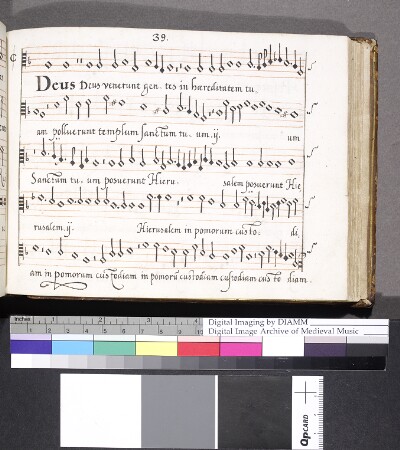 39.
Deus Deus venerunt gen. tes in hæreditatem tu.
am polluerunt templum sanctum tu. um.ij. um
Sanctum tu. um posuerunt Hieru. salem posuerunt Hie
rusalem.ij. Hierusalem in pomorum custo. di.
am in pomorum custodiam in pomorū custodiam custodiam custo diam.
inches 1 2 3 4 5 6
Digital Imaging by DIAMM
Digital Image Archive of Medieval Music
QPCARD